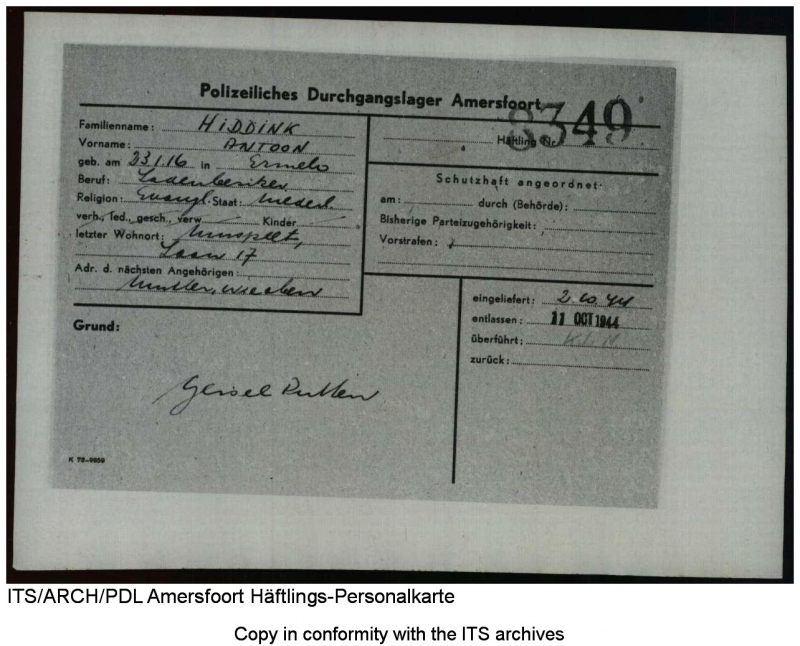 Polizeiliches Durchgangslager Amersfoort
8349
Familienname: HiDDiNK
Häftling Nr.
Vorname: ANTOON
geb. am 23.1.16 in Ermelo
Beruf:
Religion: Evangl. Staat: Niederl.
verh., led., gesch., verw Kinder
letzter Wohnort: Nunspeet,
Laan 17
Adr. d. nächsten Angehörigen:
Mutter, wie oben
Schutzhaft angeordnet:
am: durch (Behörde):
Bisherige Parteizugehörigkeit:
Vorstrafen:
eingeliefert: 2.10.44
entlassen: 11 OCT 1944
überführt: K.L.N
zurück:
Grund:
Geisel Putten
K 78-9959
ITS/ARCH/PDL Amersfoort Häftlings-Personalkarte
Copy in conformity with the ITS archives